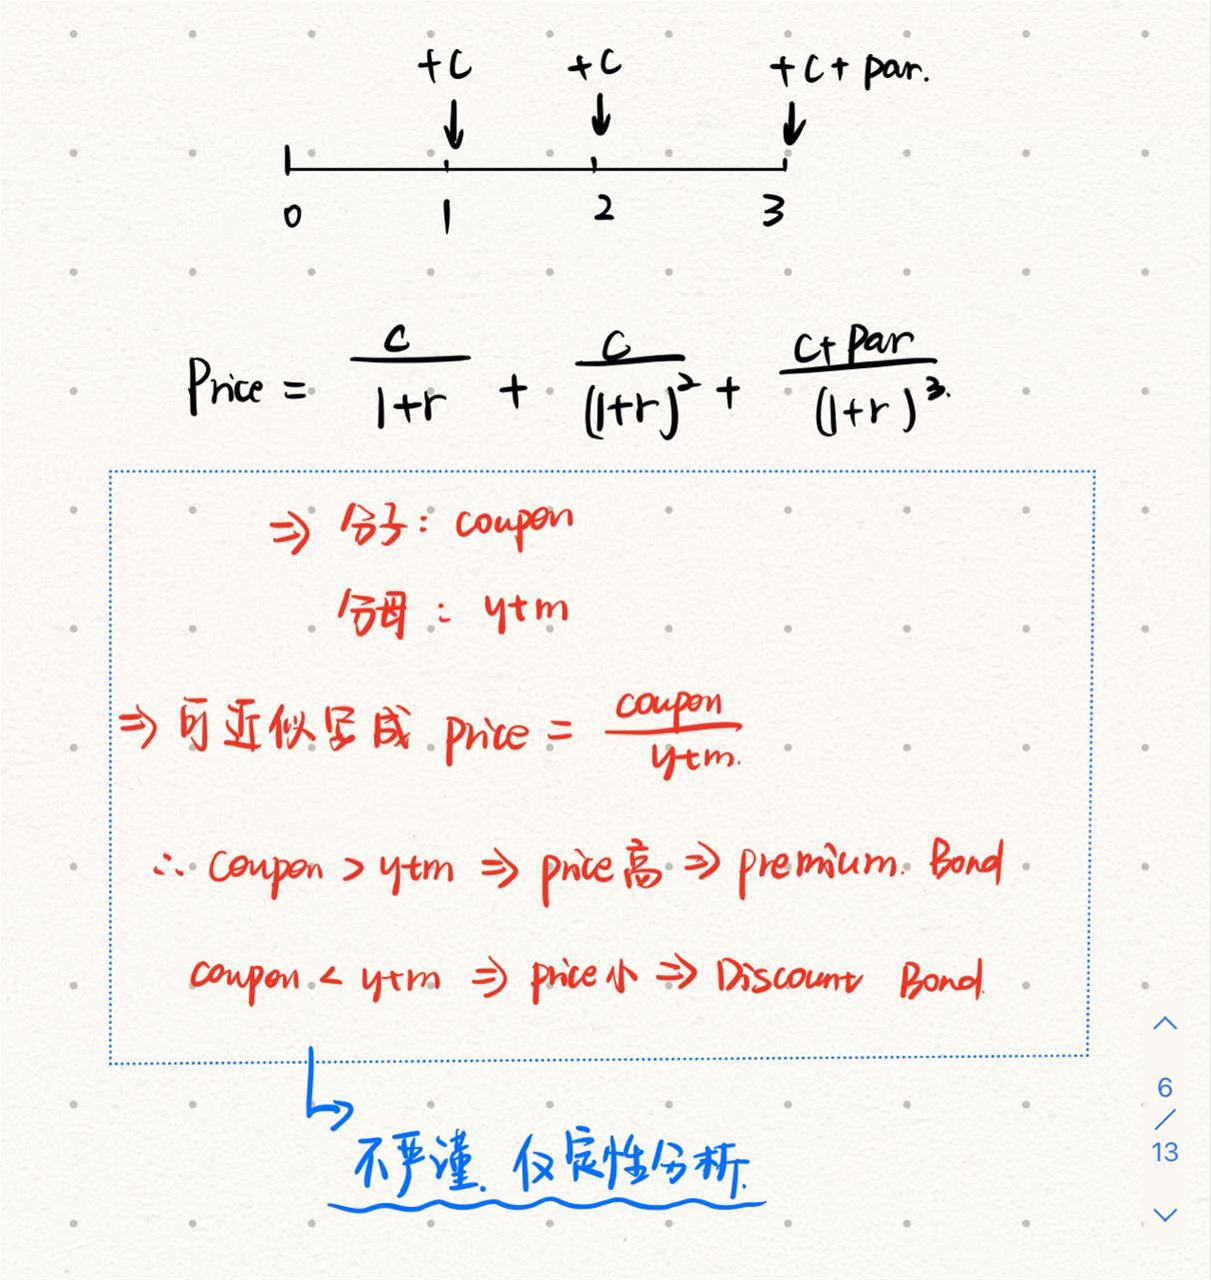 +C +C +C+par.
0 1 2 3
Price = C/(1+r) + C/(1+r)² + (C+Par)/(1+r)³.
⇒ 分子: coupon
分母: ytm
⇒ 可近似写成 price = coupon/ytm.
∴ coupon > ytm ⇒ price高 ⇒ premium. Bond
coupon < ytm ⇒ price小 ⇒ Discount Bond.
不严谨. 仅定性分析.
6
/
13